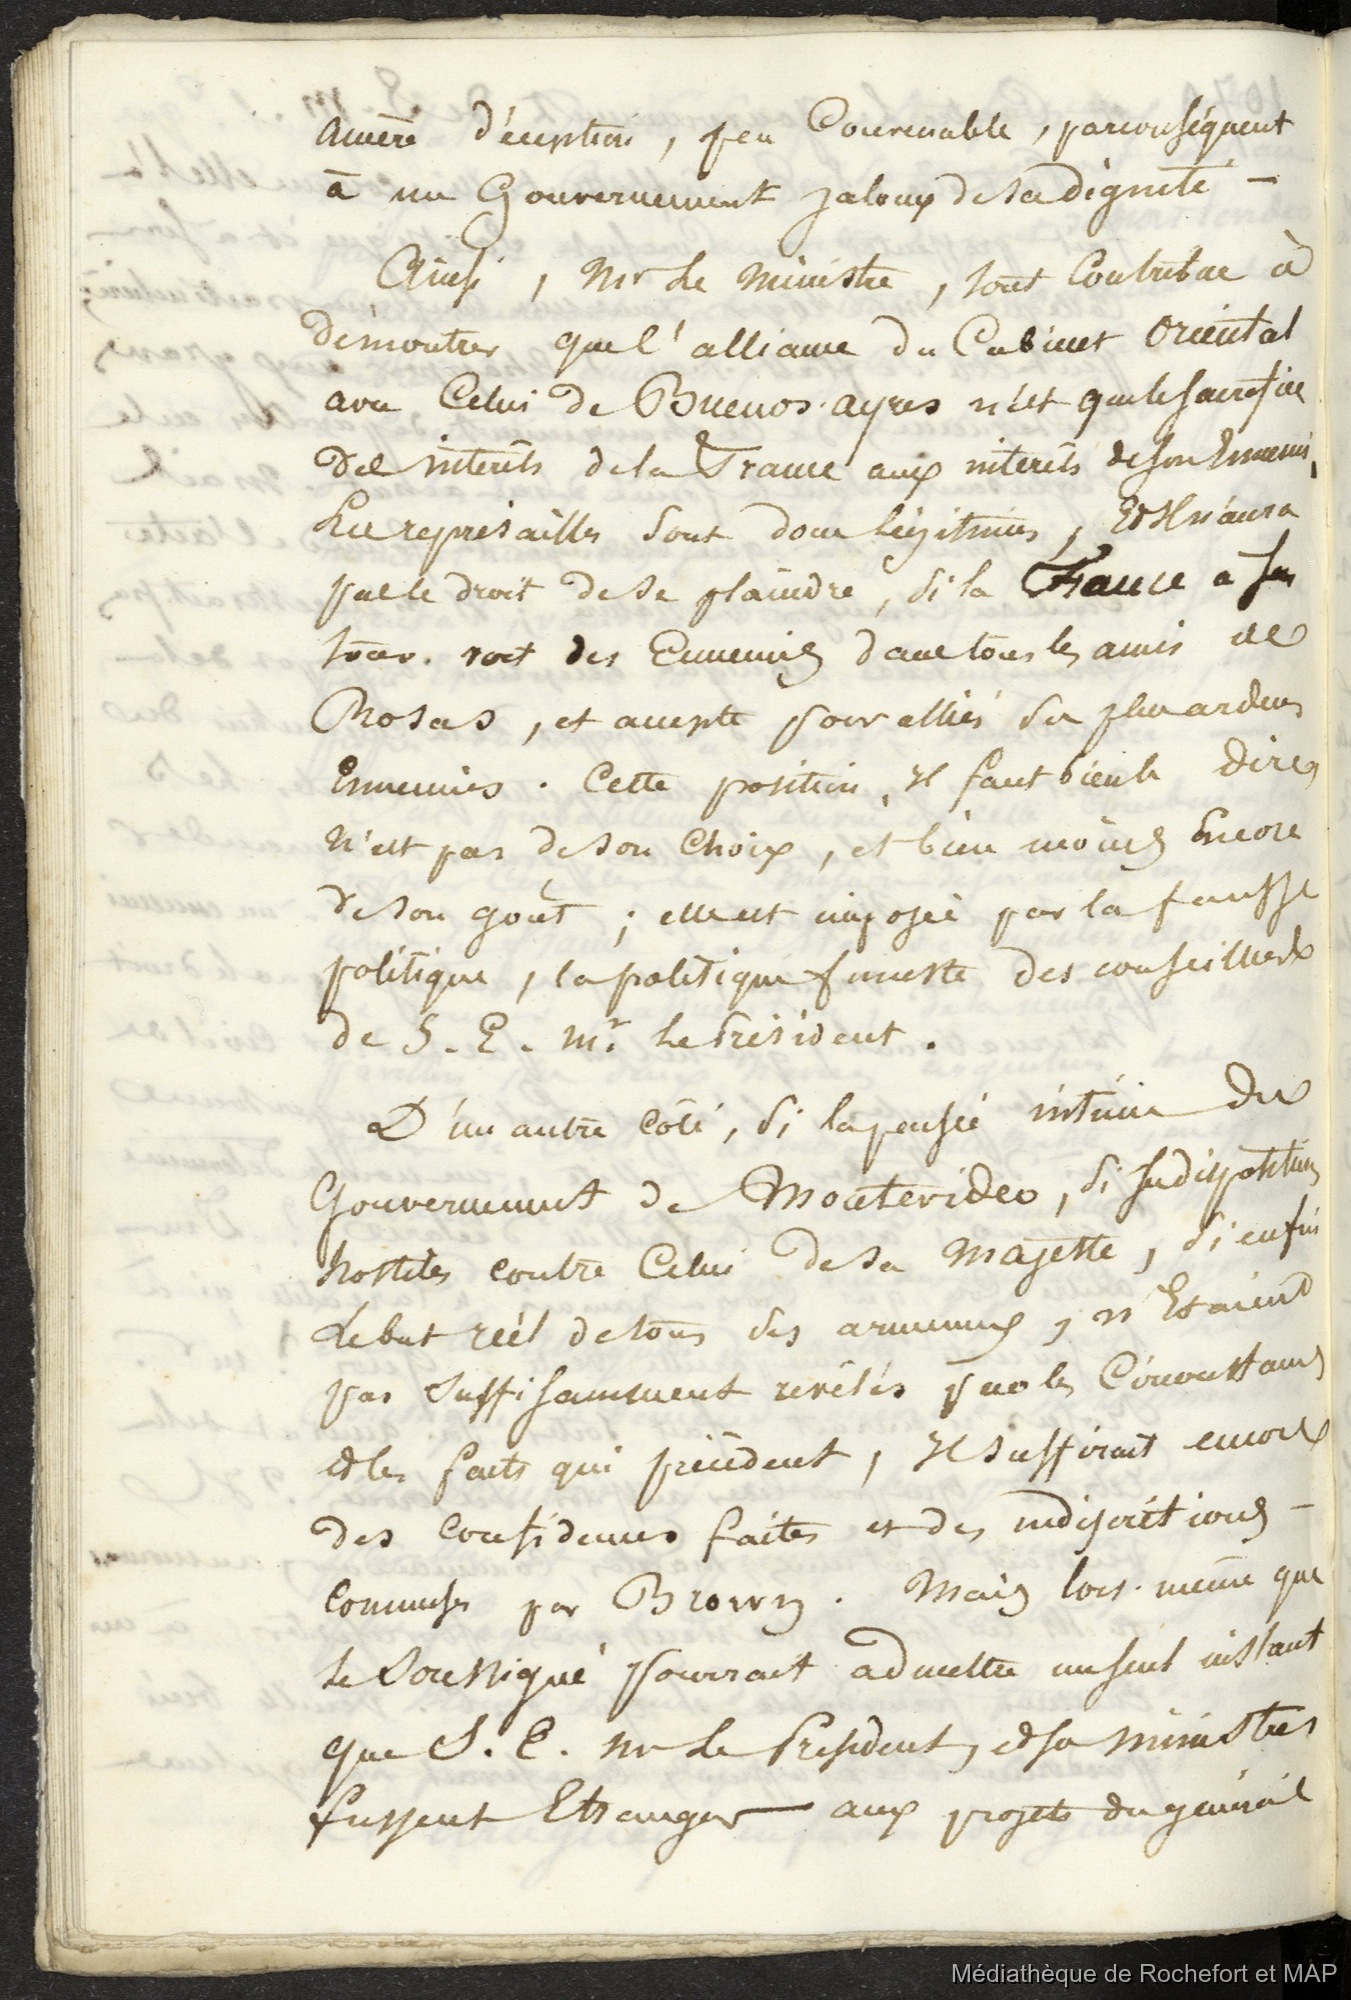 amère déception, peu Convenable, par conséquent
à un Gouvernement jaloux de sa dignité –
Ainsi, Mr Le Ministre, tout Contribue à
démontrer que l'alliance du Cabinet Oriental
avec Celui de Buenos-ayres n'est que le sacrifice
des intérêts de la France aux intérêts de son Ennemi,
Les représailles sont donc légitimes, Et Il n'aura
pas le droit de se plaindre, si la France a son
tour voit des Ennemis dans tous les amis de
Rosas, et accepte pour alliés ses plus ardens
Ennemies. Cette position, Il faut bien le dire,
N'est pas de son Choix, et bien moins Encore
de son goût ; elle est imposée par la fausse
politique, la politique funeste des conseillers
de S. E. Mr. Le Président.
D'un autre côté, si la pensée intime du
Gouvernement de Montevideo, si ses dispositions
hostiles contre Celui de sa Majesté, si enfin
Le but réél de tous ses armemens, n'Etaient
pas suffisamment révélés par les Circonstances
et les faits qui précèdent, Il suffirait encore
des Confidences faites et des indiscrétions –
commises par Brown. Mais lors-même que
le Soussigné pourrait admettre un seul instant
que S. E. Mr Le President, et ses Ministres
fussent Etranger aux projets du général
Médiathèque de Rochefort et MAP